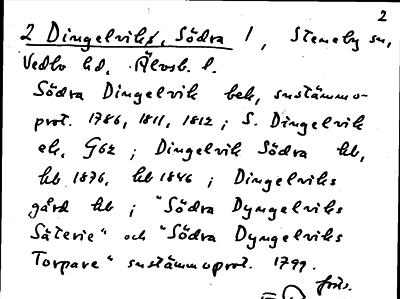 2
2 Dingelviks, Södra 1, Steneby sn,
Vedbo hd, Älvsb. l.
Södra Dingelvik bek, snstämmo-
prot. 1786, 1811, 1812; S. Dingelvik
ek, G62; Dingelvik Södra kb,
kb 1876, kb 1846; Dingelviks
gård kb; "Södra Dyngelviks
Säterie" och "Södra Dyngelviks
Torpare" snstämmoprot. 1799.
forts.